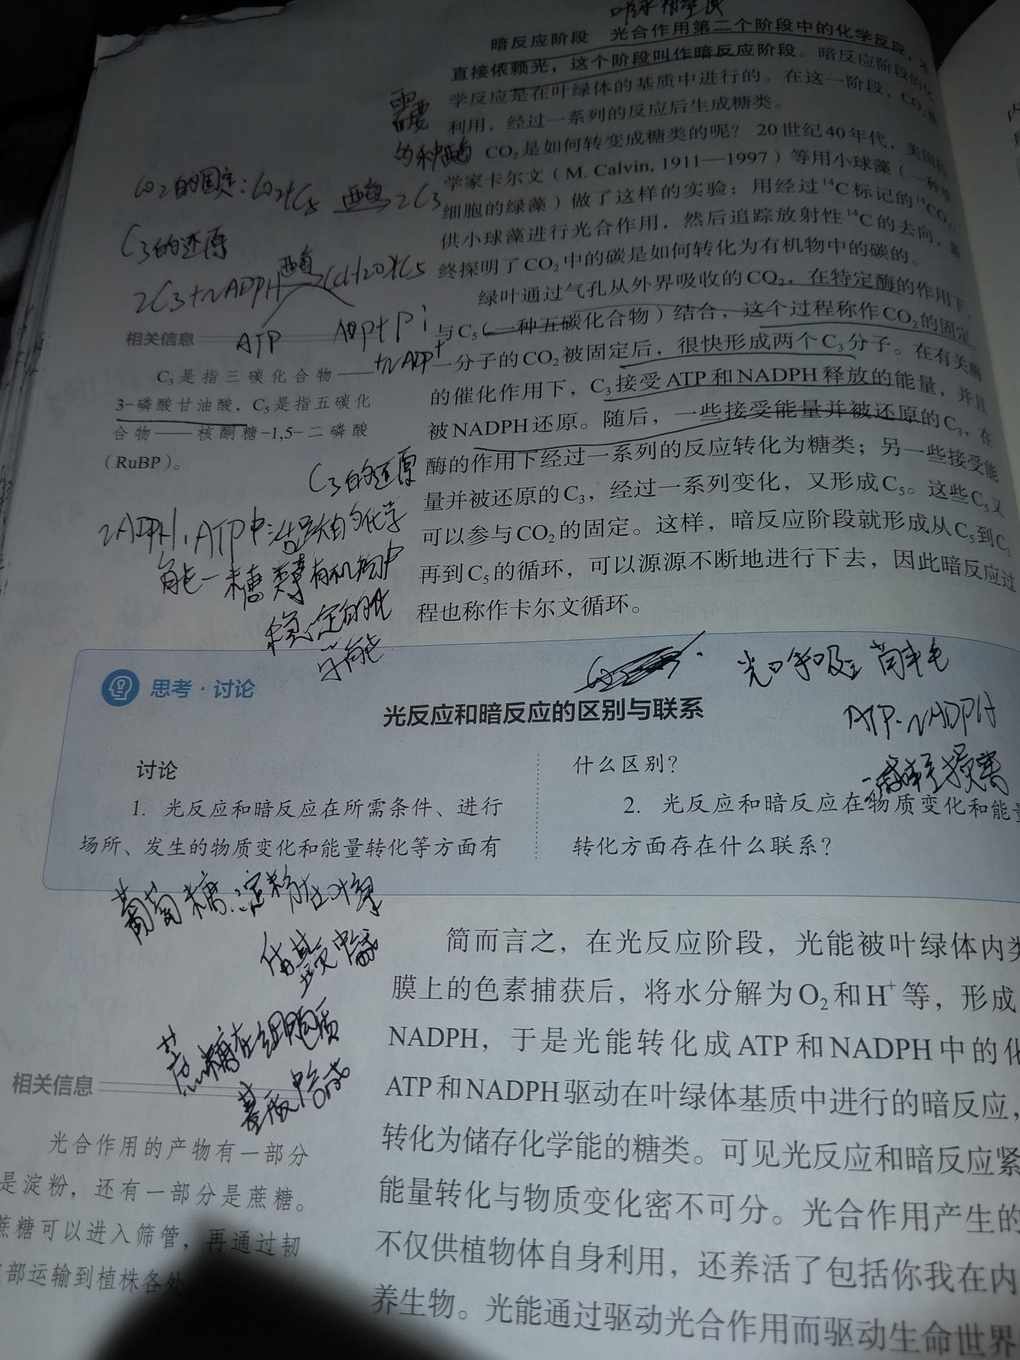 暗反应阶段 光合作用第二个阶段中的化学反应，
直接依赖光，这个阶段叫作暗反应阶段。暗反应阶段的化
学反应是在叶绿体的基质中进行的。在这一阶段，CO₂被
利用，经过一系列的反应后生成糖类。
CO₂是如何转变成糖类的呢？ 20世纪40年代，美国科
学家卡尔文（M. Calvin, 1911—1997）等用小球藻（一种单
细胞的绿藻）做了这样的实验：用经过¹⁴C标记的¹⁴CO₂，
供小球藻进行光合作用，然后追踪放射性¹⁴C的去向，最
终探明了CO₂中的碳是如何转化为有机物中的碳的。
绿叶通过气孔从外界吸收的CO₂，在特定酶的作用下，
与C₅（一种五碳化合物）结合，这个过程称作CO₂的固定。
一分子的CO₂被固定后，很快形成两个C₃分子。在有关酶
的催化作用下，C₃接受ATP和NADPH释放的能量，并且
被NADPH还原。随后，一些接受能量并被还原的C₃，在
酶的作用下经过一系列的反应转化为糖类；另一些接受能
量并被还原的C₃，经过一系列变化，又形成C₅。这些C₅又
可以参与CO₂的固定。这样，暗反应阶段就形成从C₅到C₃
再到C₅的循环，可以源源不断地进行下去，因此暗反应过
程也称作卡尔文循环。
需要
多种酶
CO₂的固定：CO₂+C₅ 酶 2C₃
C₃的还原
2C₃+NADPH 酶 (CH2O)+C₅
ATP ADP+Pi
+NADP⁺
相关信息
C₃是指三碳化合物——
3-磷酸甘油酸，C₅是指五碳化
合物——核酮糖-1,5-二磷酸
（RuBP）。
C₃的还原
NADPH、ATP中活跃的化学
能→糖类等有机物中
稳定的化
学能
思考·讨论
光反应和暗反应的区别与联系
光呼吸：消耗
ATP、NADPH
讨论
1. 光反应和暗反应在所需条件、进行
场所、发生的物质变化和能量转化等方面有
什么区别？
2. 光反应和暗反应在物质变化和能量
转化方面存在什么联系？
葡萄糖、淀粉在叶绿
体基质中合成
蔗糖在细胞质
基质中合成
简而言之，在光反应阶段，光能被叶绿体内类
膜上的色素捕获后，将水分解为O₂和H⁺等，形成
NADPH，于是光能转化成ATP和NADPH中的化
ATP和NADPH驱动在叶绿体基质中进行的暗反应，
转化为储存化学能的糖类。可见光反应和暗反应紧
能量转化与物质变化密不可分。光合作用产生的
不仅供植物体自身利用，还养活了包括你我在内
养生物。光能通过驱动光合作用而驱动生命世界
相关信息
光合作用的产物有一部分
是淀粉，还有一部分是蔗糖。
蔗糖可以进入筛管，再通过韧
部运输到植株各处